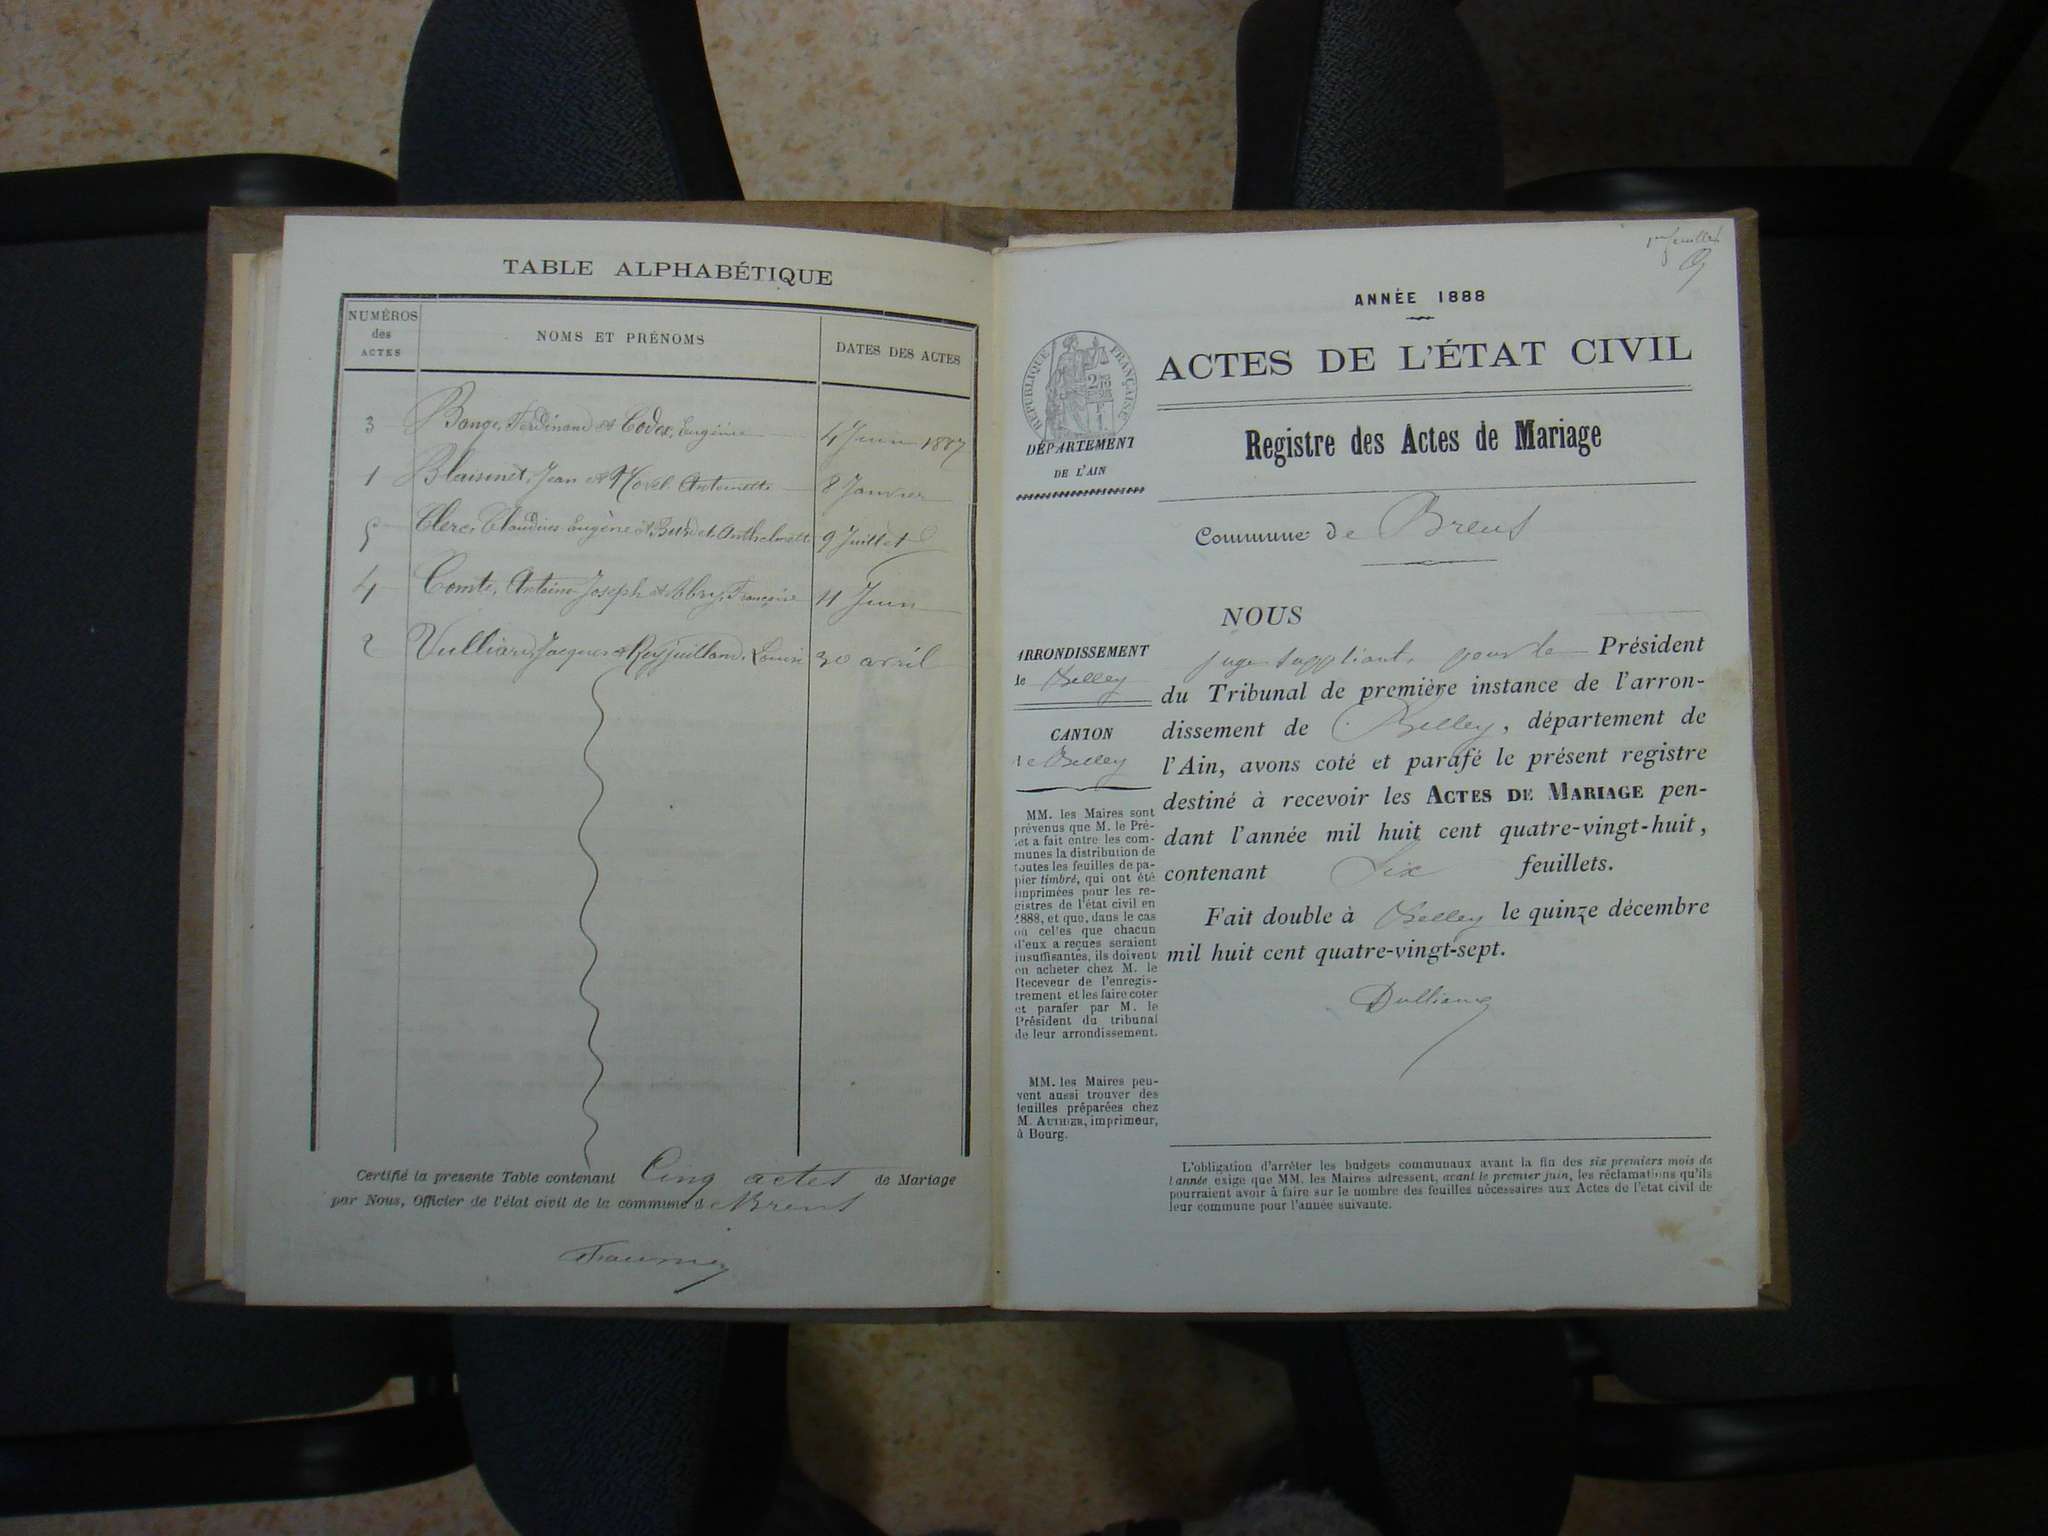 TABLE ALPHABÉTIQUE
NUMÉROS des ACTES
NOMS ET PRÉNOMS
DATES DES ACTES
3 Ferdinand et Codex, Eugénie 4 Juin 1887
1 Jean et Morel Antoinette 8 Janvier
5 Clerc, Claudius Eugène et Anthelmette 9 Juillet
4 Comte, Antoine Joseph et Abry, Françoise 11 Juin
2 Vulliard, Jacques et Reyjuilland, Louise 30 avril
Certifié la presente Table contenant Cinq actes de Mariage
par Nous, Officier de l'état civil de la commune d Brens
1er feuillet
ANNÉE 1888
ACTES DE L'ÉTAT CIVIL
RÉPUBLIQUE FRANÇAISE
DÉPARTEMENT
DE L'AIN
Registre des Actes de Mariage
Commune de Brens
ARRONDISSEMENT
de Belley
CANTON
de Belley
MM. les Maires sont
prévenus que M. le Pré-
fet a fait entre les com-
munes la distribution de
toutes les feuilles de pa-
pier timbré, qui ont été
imprimées pour les re-
gistres de l'état civil en
1888, et que, dans le cas
où cel'es que chacun
d'eux a reçues seraient
insuffisantes, ils doivent
en acheter chez M. le
Receveur de l'enregis-
trement et les faire coter
et parafer par M. le
Président du tribunal
de leur arrondissement.
MM. les Maires peu-
vent aussi trouver des
feuilles préparées chez
M. AUTHIER, imprimeur,
à Bourg.
NOUS
juge suppléant, pour le Président
du Tribunal de première instance de l'arron-
dissement de Belley, département de
l'Ain, avons coté et parafé le présent registre
destiné à recevoir les ACTES DE MARIAGE pen-
dant l'année mil huit cent quatre-vingt-huit,
contenant Six feuillets.
Fait double à Belley le quinze décembre
mil huit cent quatre-vingt-sept.
L'obligation d'arrêter les budgets communaux avant la fin des six premiers mois de
l'année exige que MM. les Maires adressent, avant le premier juin, les réclamations qu'ils
pourraient avoir à faire sur le nombre des feuilles nécessaires aux Actes de l'état civil de
leur commune pour l'année suivante.